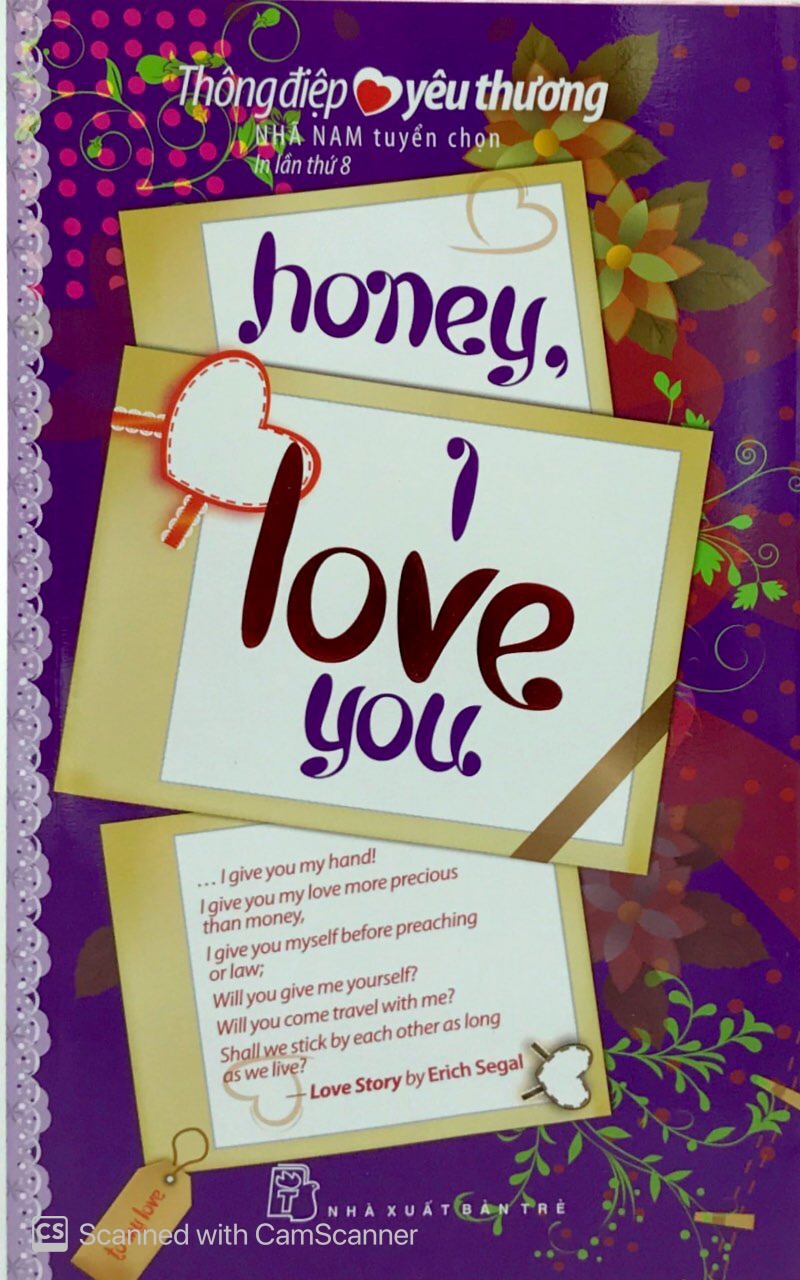 Thông điệp yêu thương
NHÃ NAM tuyển chọn
In lần thứ 8
honey,
i
love
you
... I give you my hand!
I give you my love more precious
than money,
I give you myself before preaching
or law;
Will you give me yourself?
Will you come travel with me?
Shall we stick by each other as long
as we live?
— Love Story by Erich Segal
to my love
NHÀ XUẤT BẢN TRẺ
CS Scanned with CamScanner